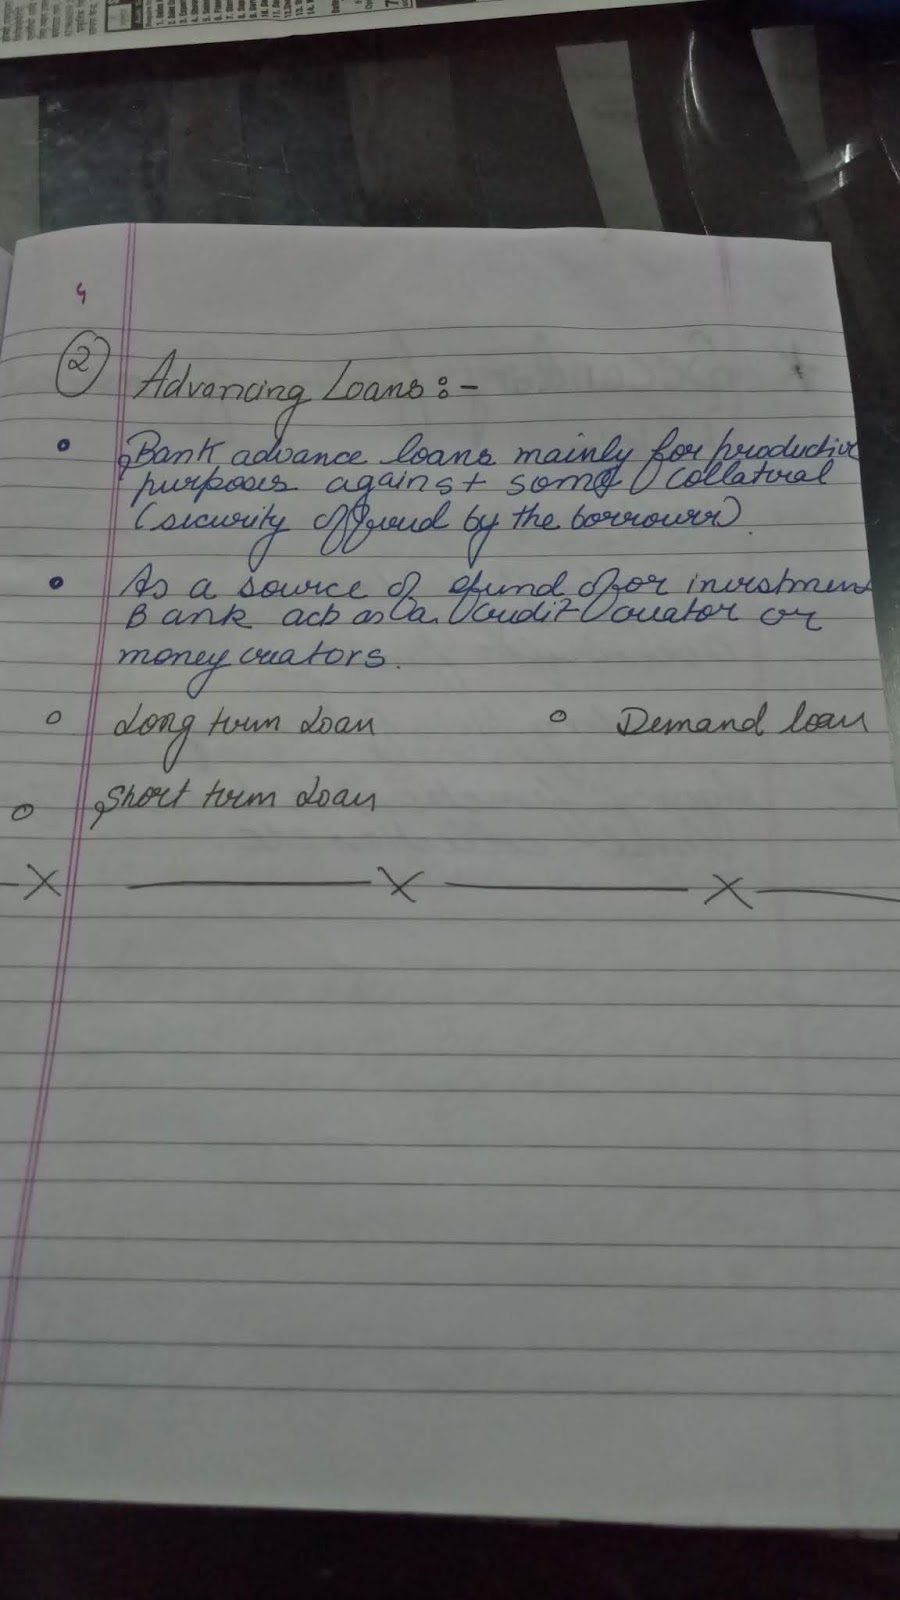 4
② Advancing Loans :-
• Bank advance loans mainly for productive
purposes against some collateral
(security offered by the borrower)
• As a source of fund for investment
Bank act as a credit creator or
money creators.
○ Long term Loan ○ Demand loan
○ Short term Loan
—X ——— X ——— X ——